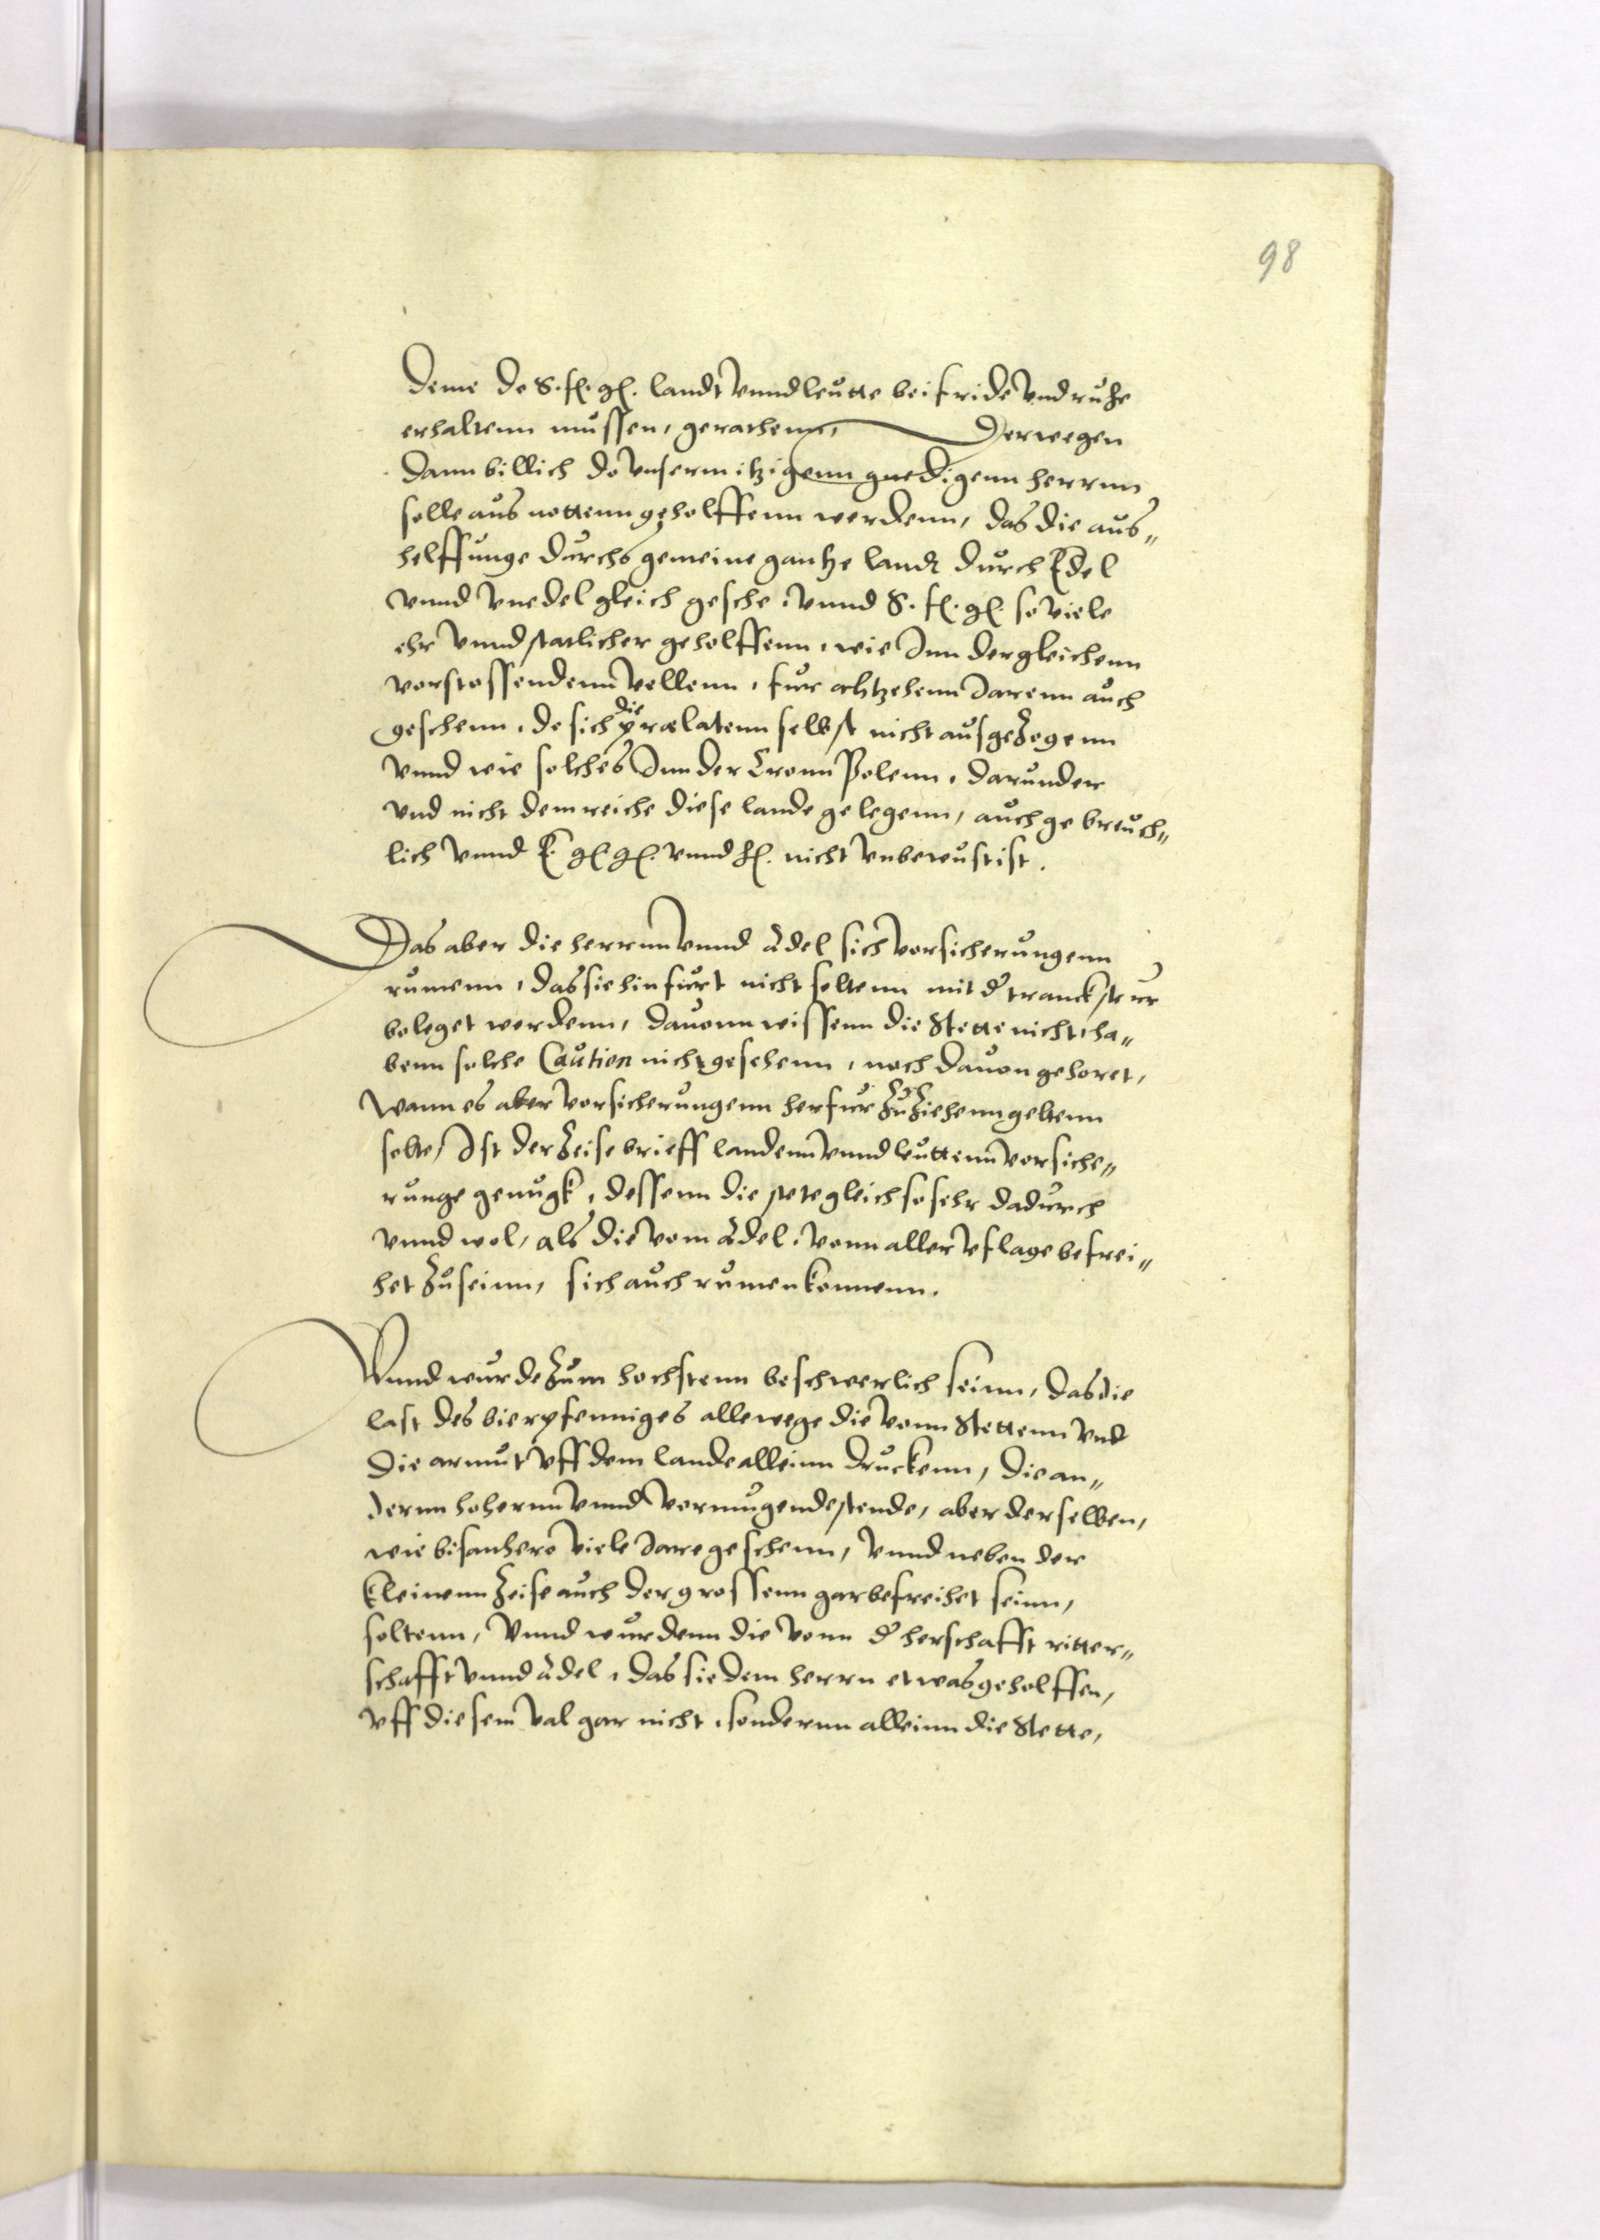 98
deme de S. f. g. landt vnnd leutte bei fride vnd ruhe
erhaltenn mussen, gerathenn, Derwegen
dann billich do vnserm itzigenn gnedigenn herrnn
solle aus nottenn geholffenn werdenn, das die aus„
helffunge durchs gemeine gantze landt durch Edel
vnnd vnedel gleich gesche, vnnd S. f. g. so viele
ehr vnnd statlicher geholffenn, wie Inn dergleichenn
vorstossendenn vellenn, fur achtzehenn Jarenn auch
geschenn, do sich die prælatenn selbst nicht ausgezogenn
vnnd wie solches Inn der Cronn Polenn, darunder
vnd nicht dem reiche diese lande gelegenn, auch gebreuch„
lich vnnd E. g. g. vnnd h. nicht vnbewust ist.
Das aber die herrnn vnnd Adel sich vorsicherungenn
rumenn, das sie hinfurt nicht soltenn mit der trancksteur
beleget werdenn, dauonn wissenn die Stette nicht, ha„
benn solche Caution nicht gesehenn, noch dauon gehoret,
wann es aber vorsicherungenn herfur zuziehenn geltenn
solte, Ist der zeise brieff landenn vnnd leuttenn vorsiche„
runge genugk, dessenn die stete gleich so sehr dadurch
vnnd wol, als die vom Adel, vonn aller vflage befrei„
het zu seinn, sich auch rumen konnenn.
Vnnd wurde zum hochstenn beschwerlich seinn, das die
last des bierpfenniges allewege die vonn Stettenn vnd
die armut vff dem lande alleinn druckenn, die an„
dernn hohernn vnnd vormugende stende, aber derselben,
wie bisanhero viele Jare geschenn, vnnd neben der
kleinenn zeise auch der grossenn gar befreihet seinn,
soltenn, Vnnd wurdenn die vonn der herschafft ritter„
schafft vnnd Adel, das sie dem herrn etwas geholffen,
vff diesem val gar nicht, sondernn alleinn die Stette,